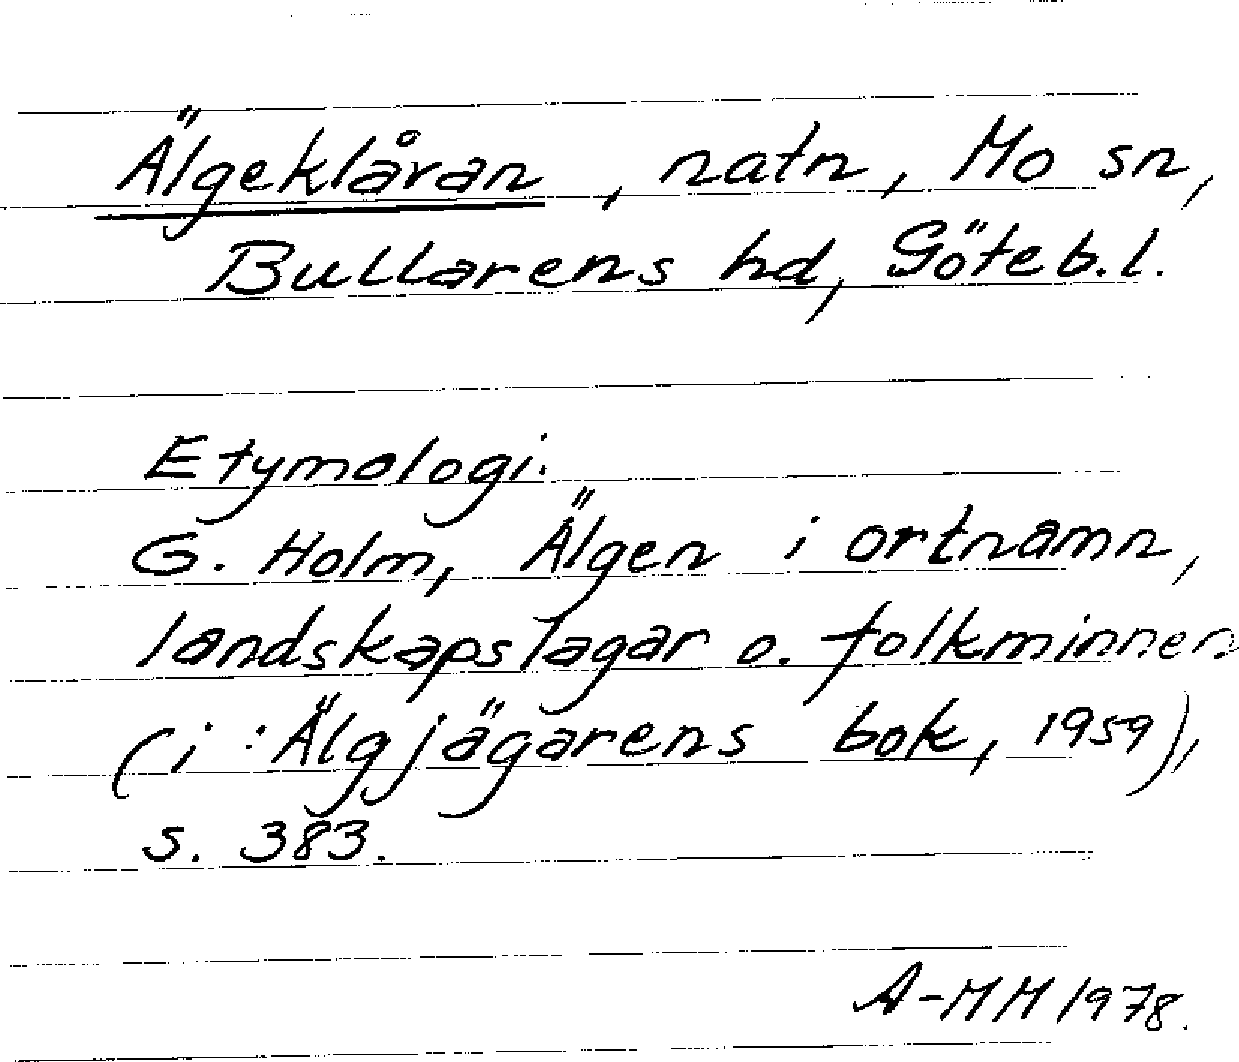 Älgeklåran, natn, Mo sn,
Bullarens hd, Göteb.l.
Etymologi:
G. Holm, Älgen i ortnamn,
landskapslagar o. folkminnen
(i: Älgjägarens bok, 1959),
s. 383.
A-MM 1978.